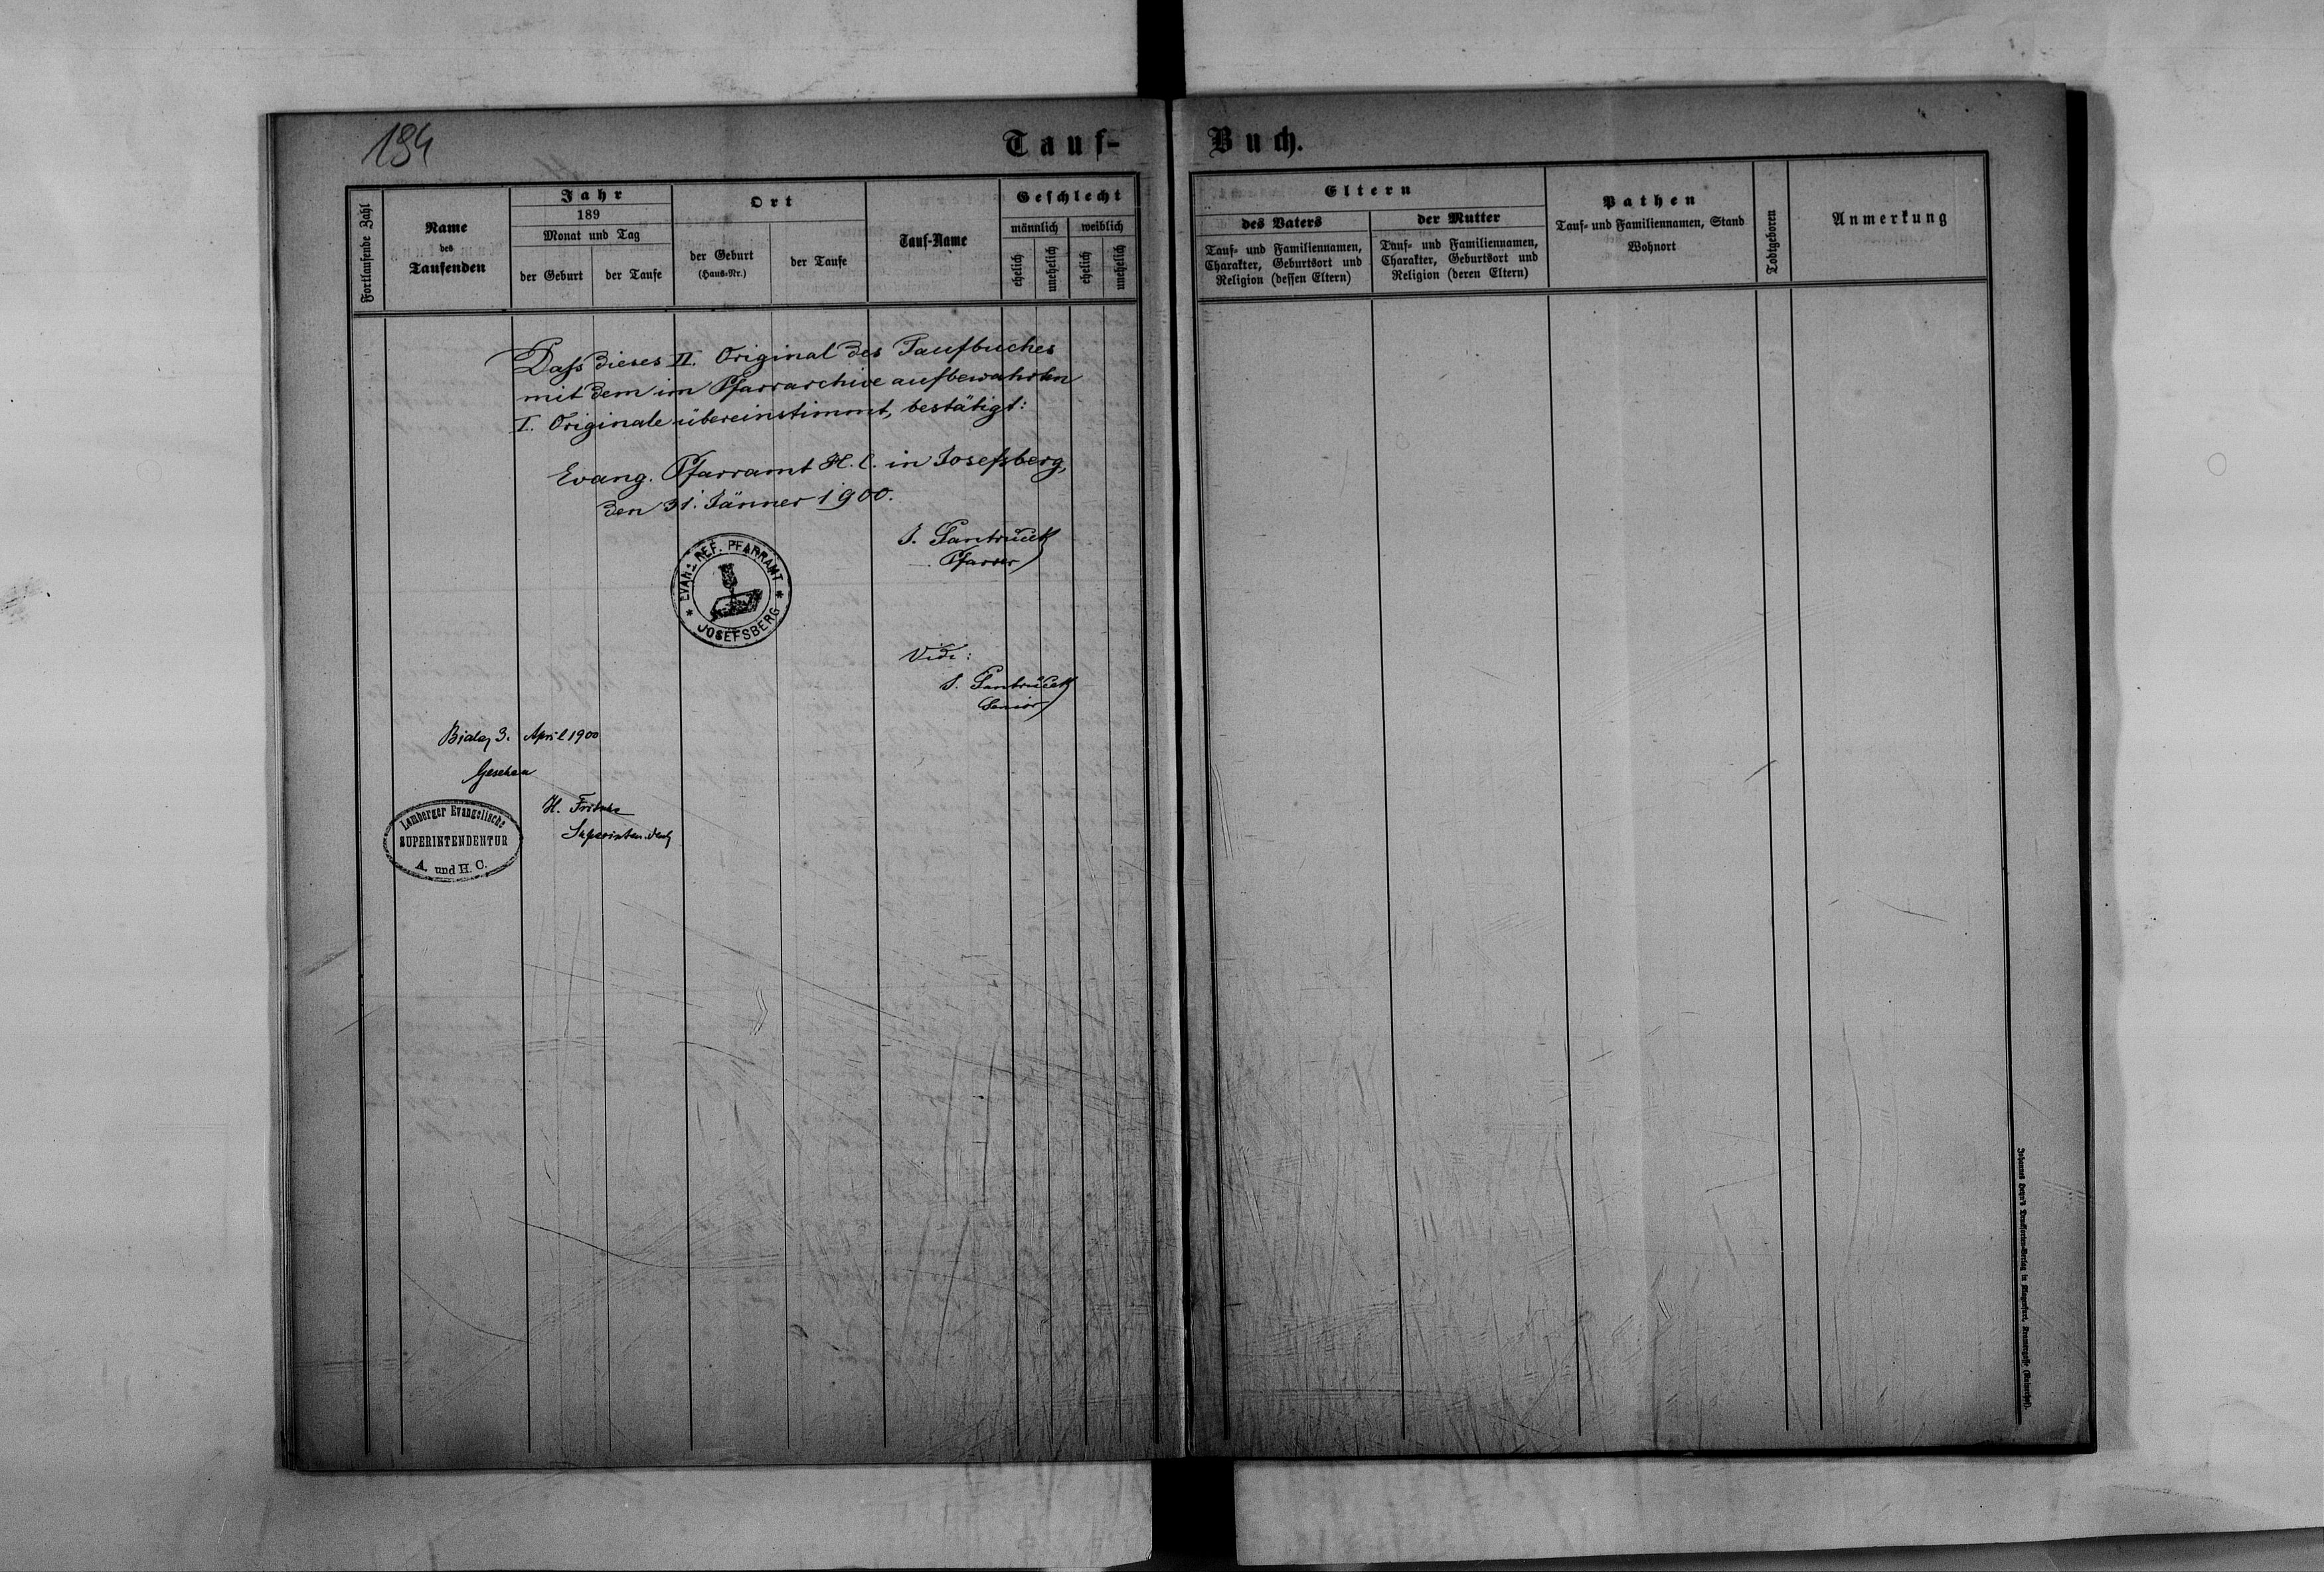 194
Tauf-
Buch.
Fortlaufende Zahl
Name
des
Taufenden
Jahr
189
Monat und Tag
der Geburt
der Taufe
Ort
der Geburt
(Haus-Nr.)
der Taufe
Tauf-Name
Geschlecht
männlich
weiblich
ehelich
unehelich
ehelich
unehelich
Eltern
des Vaters
Tauf- und Familiennamen,
Charakter, Geburtsort und
Religion (dessen Eltern)
der Mutter
Tauf- und Familiennamen,
Charakter, Geburtsort und
Religion (deren Eltern)
Pathen
Tauf- und Familiennamen, Stand
Wohnort
Todtgeboren
Anmerkung
Dass dieses II. Original des Taufbuches
mit dem im Pfarrarchive aufbewahrten
I. Originale übereinstimmt, bestätigt:
Evang. Pfarramt H. C. in Josefsberg,
den 31. Jänner 1900.
EVANG. REF. PFARRAMT
* JOSEFSBERG *
J.
Pfarrer
Vidi:
J.
Senior
Biala, 3. April 1900
Gesehen
H.
Superintendent
Lemberger Evangelische
SUPERINTENDENTUR
A. und H. C.